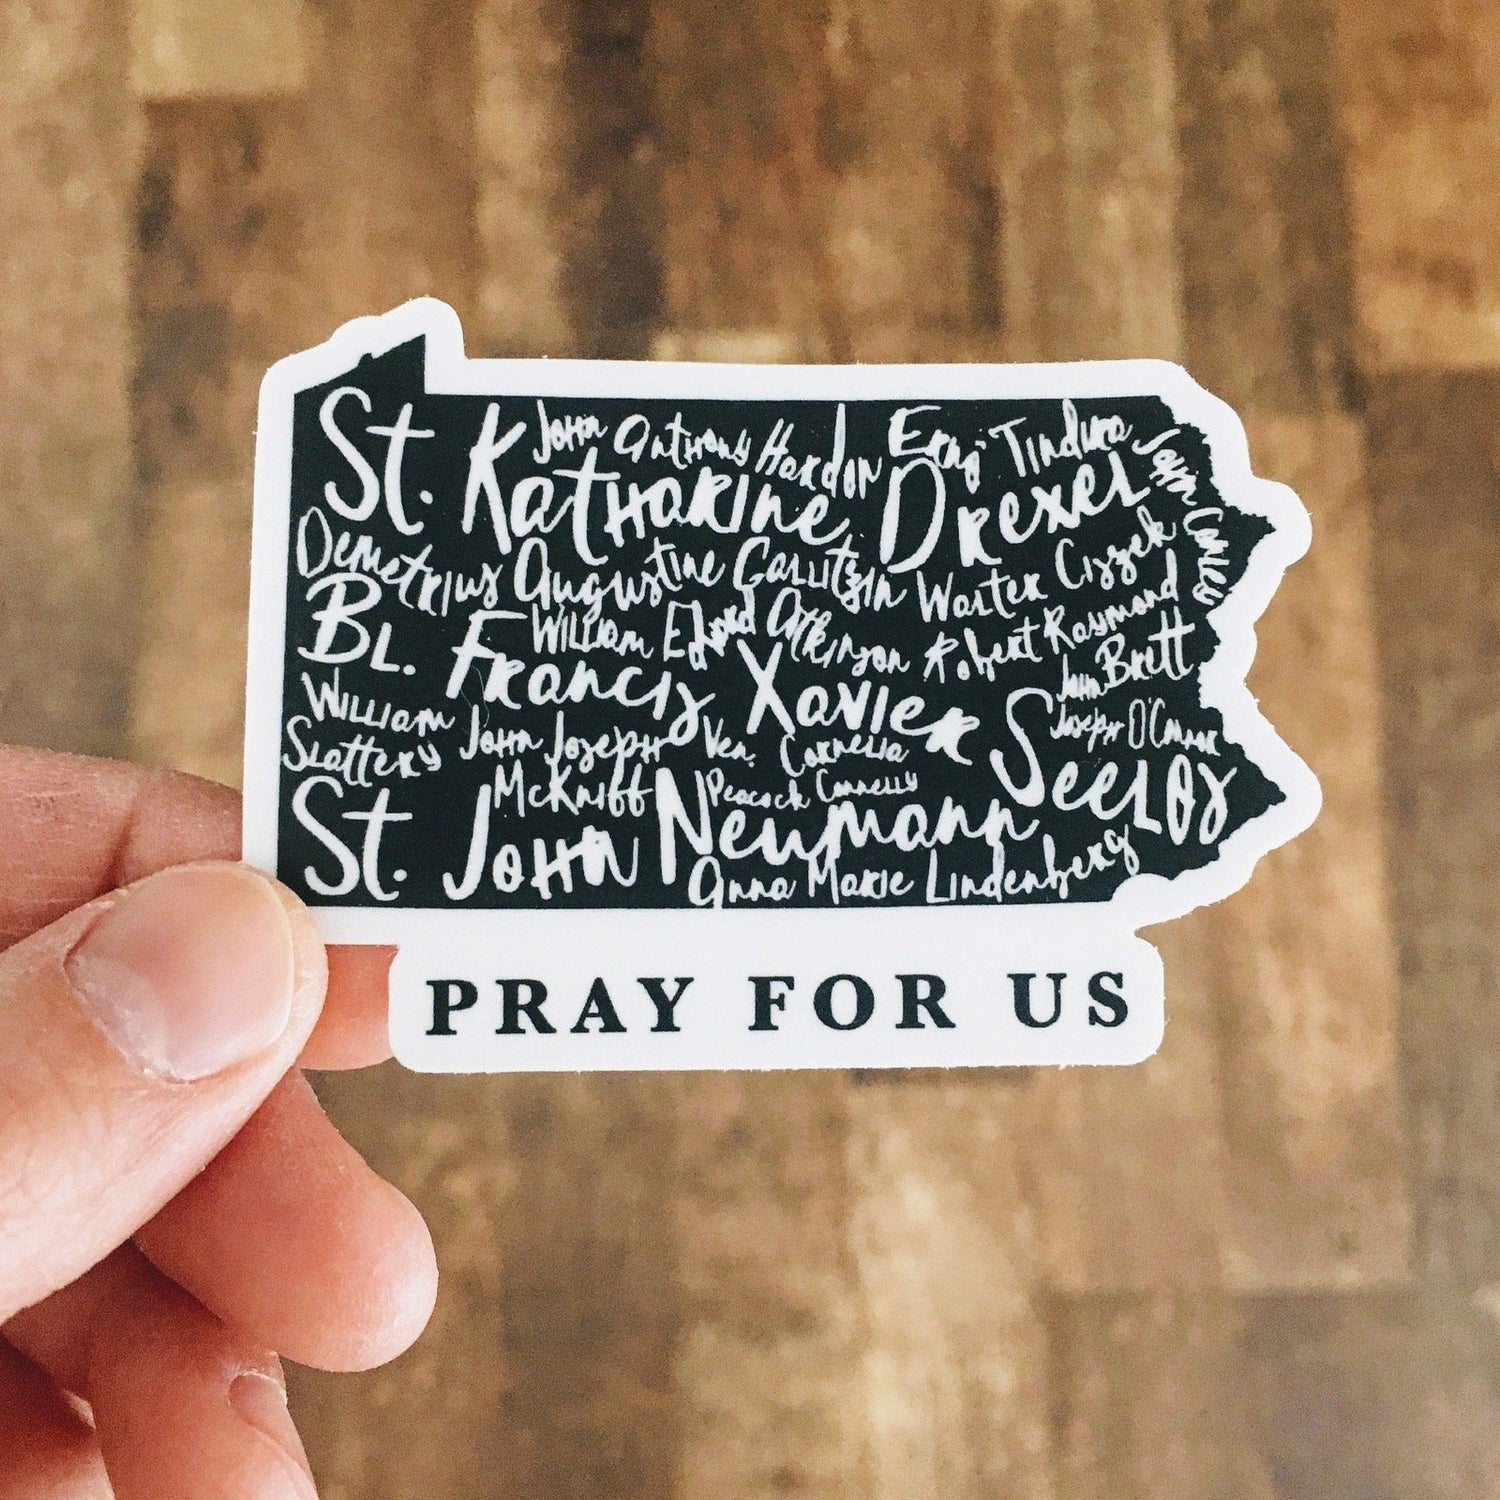 St. Katharine Drexel
John Anthony Hardon
Erno Tindira
John Conley
Demetrius Augustine Gallitzin
Walter Ciszek
Bl. Francis Xavier Seelos
William Edward Atkinson
Robert Raymond
John Brett
William Slattery
John Joseph McKniff
Ven. Cornelia Peacock Connelly
Joseph O'Connor
St. John Neumann
Anna Marie Lindenberg
PRAY FOR US